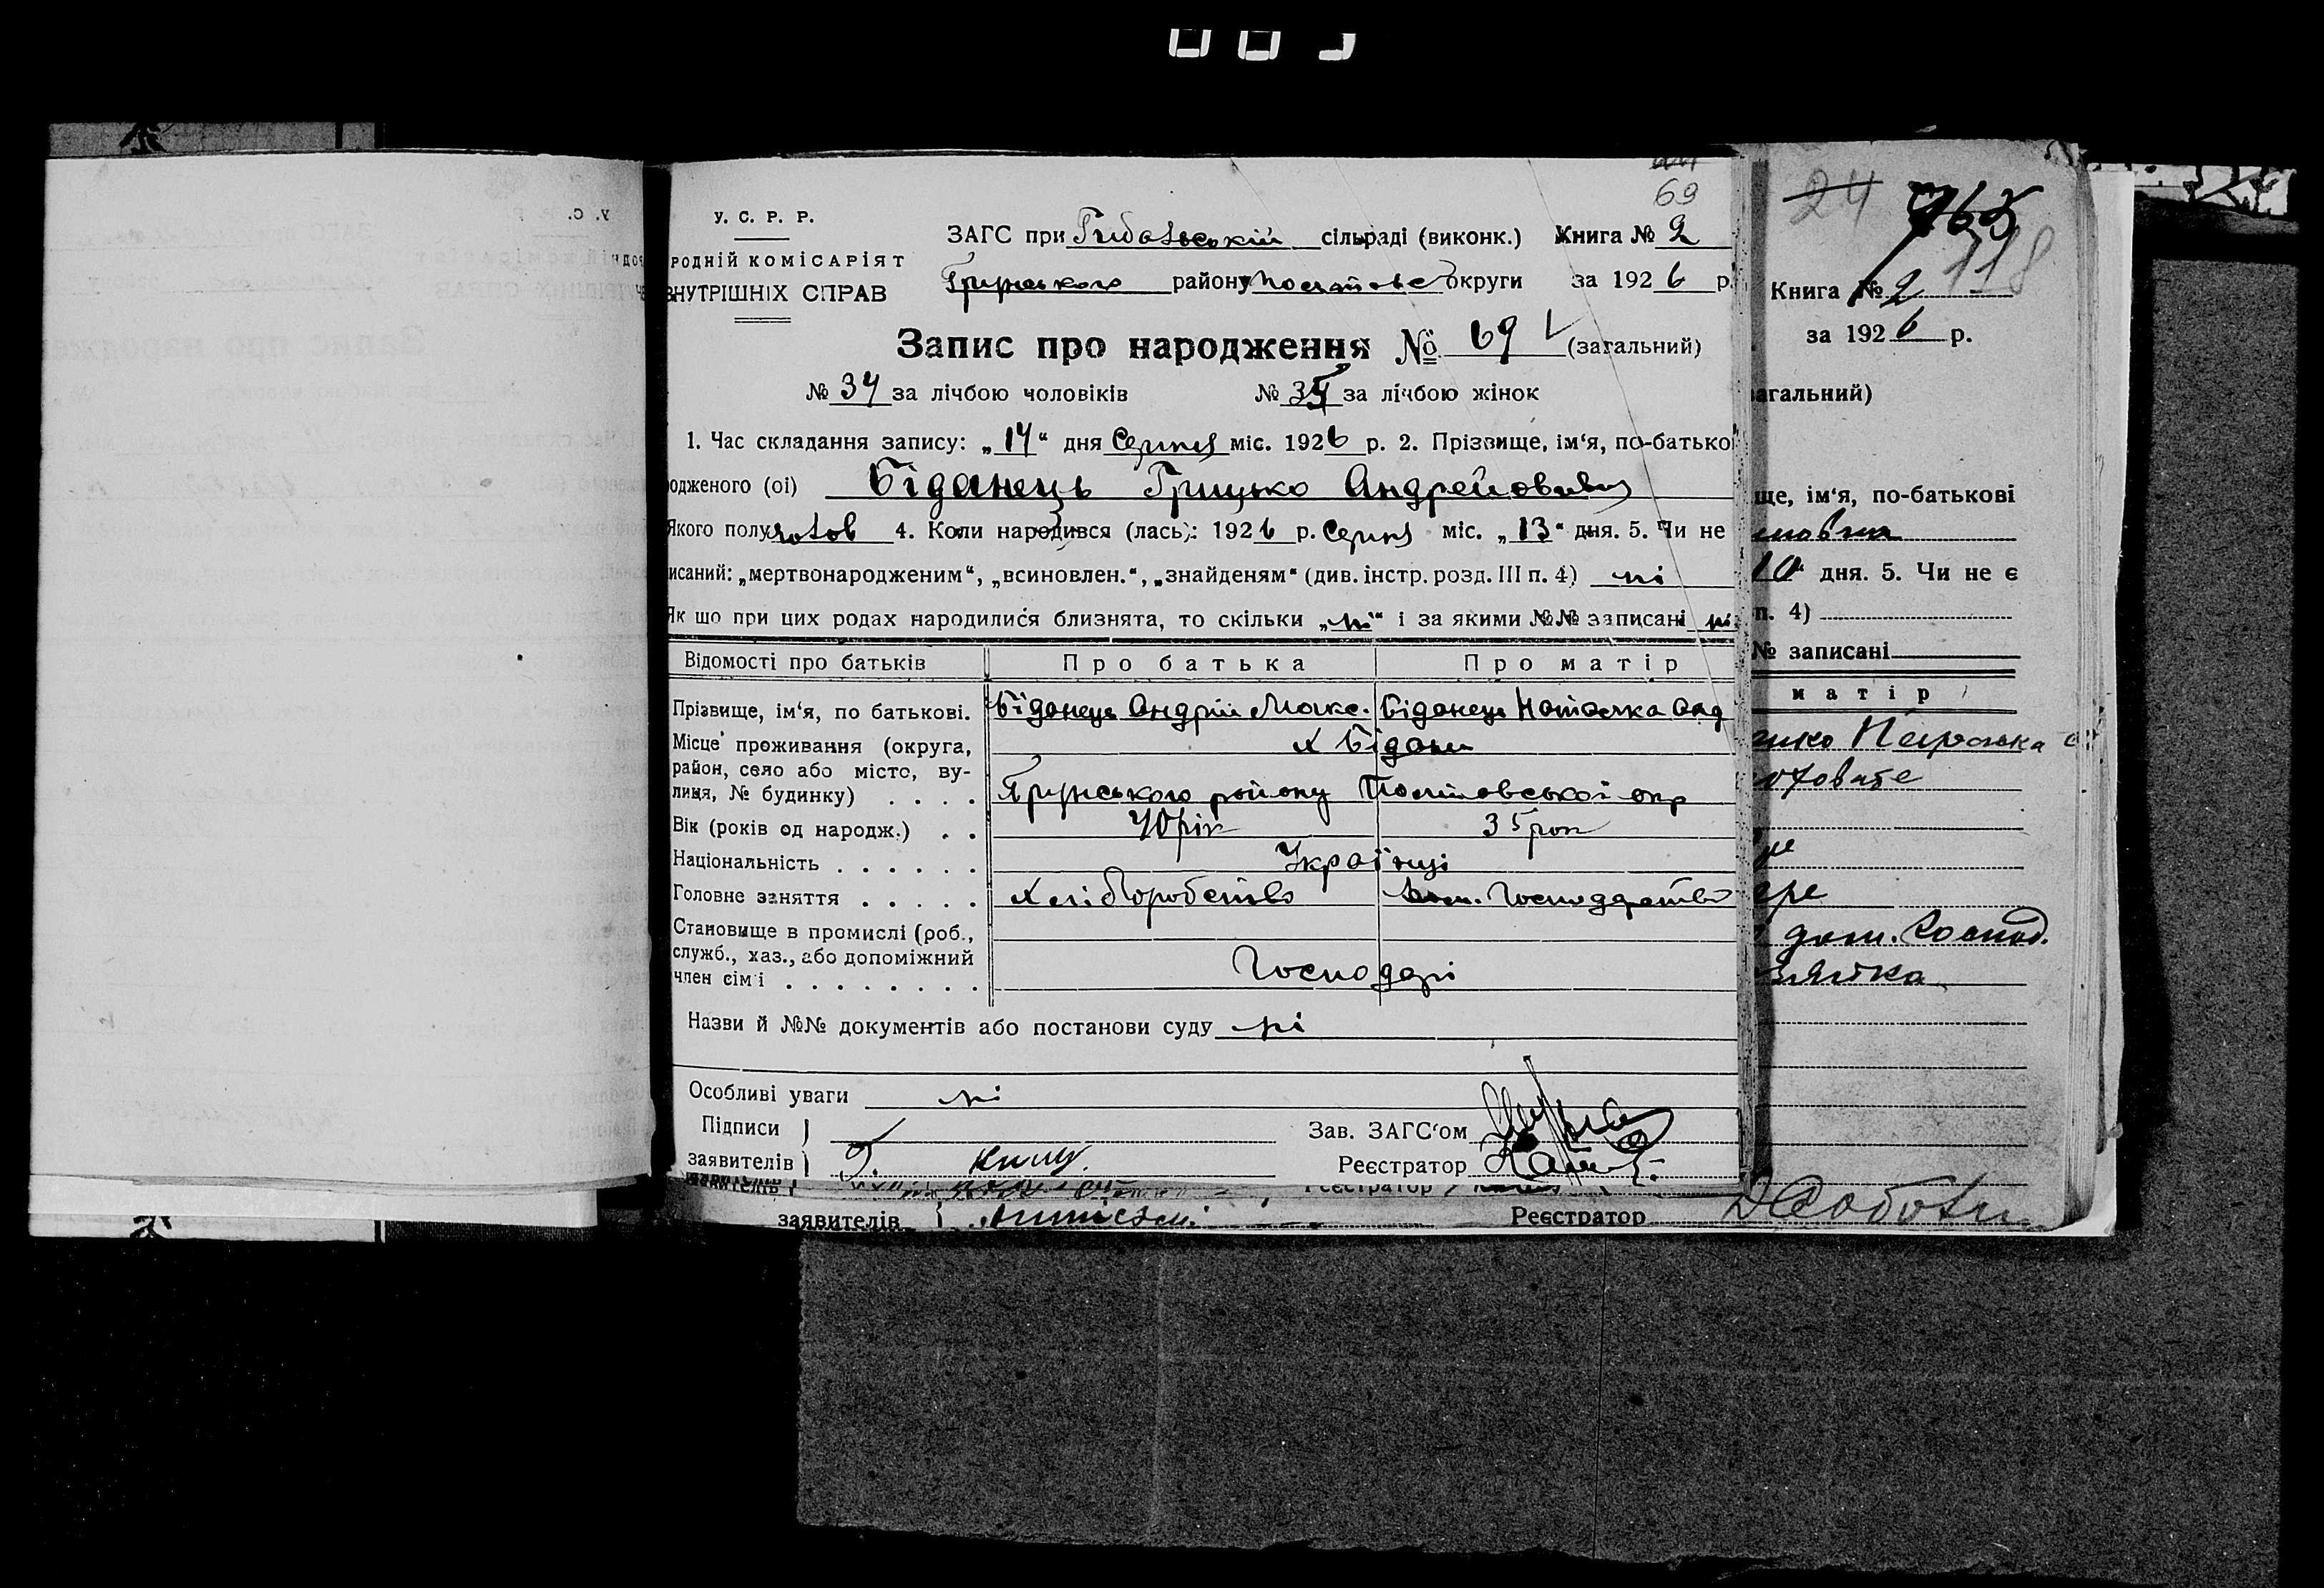 69
У. С. Р. Р.
ЗАГС при сільраді (виконк.) Книга № 2
РОДНІЙ КОМІСАРІЯТ
району округи за 1926 р.
ВНУТРІШНІХ СПРАВ
Запис про народження № 69 (загальний)
№ 34 за лічбою чоловіків № 35 за лічбою жінок
1. Час складання запису: „14“ дня Серпня міс. 1926 р. 2. Прізвище, ім‘я, по-батько
одженого (ої) Біданець Грицько Андрейович
Якого полу чолов 4. Коли народився (лась): 1926 р. Серпня міс. „13“ дня. 5. Чи не
исаний: „мертвонародженим“, „всиновлен.“, „знайденям“ (див. інстр. розд. III п. 4) ні
Як що при цих родах народилися близнята, то скільки „ні“ і за якими №№ записані ні
Відомості про батьків Про батька Про матір
Прізвище, ім‘я, по батькові. Біданець Андрій Макс. Біданець Наталка
Місце проживання (округа, х Бідани
район, село або місто, ву-
лиця, № будинку) . . . . району Полтавської окр
Вік (років од народж.) . . 40 рік 35 рок
Національність . . . . . . Українці
Головне заняття . . . . . Хліборобство Господарство
Становище в промислі (роб.,
служб., хаз., або допоміжний Господарі
член сім‘ї . . . . . . . .
Назви й №№ документів або постанови суду ні
Особливі уваги ні
Підписи
Зав. ЗАГС‘ом
заявителів
Реєстратор
заявителів
Реєстратор
24
118
Книга № 2
за 1926 р.
агальний)
ще, ім‘я, по-батькові
10“ дня. 5. Чи не є
п. 4)
№ записані
матір
дом. господ.